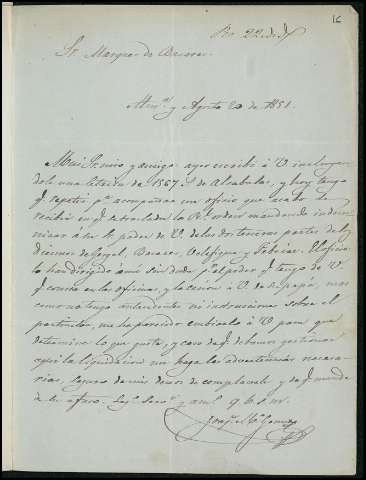 16
Rn 22 de id
Sr. Marques de Bacares
Alm.ª y Agosto 20 de 1851.
Mui Sr. mio y amigo: ayer escribi à V. incluyen
dole una letra de 1567 rs de Alcabalas, y hoy tengo
q. repetir p.ª acompañar un oficio que acabo de
recibir en q. se traslada la Rl. orden mandando indem
nizar à su h. padre de V. de las dos terceras partes de
Diezmos de Gergal, Bacares, Olefique y Febeire. El oficio
lo han dirigido à mi sin duda p.r el poder q. tengo de V.
q. consta en las oficinas, y la cesion à V. de su papá, mas
como no tengo antecedentes ni instrucciones sobre el
particular, me ha parecido embiarlo à V. para que
determine lo que guste, y caso de q. debamos gestionar
aqui la liquidacion me haga las advertencias necesa
rias, seguro de mis deseos de complacerle y de q. mande
à su afmo. Seg.º Serv.r y am.º q b s m.
Joaq.n M.ª Gomez